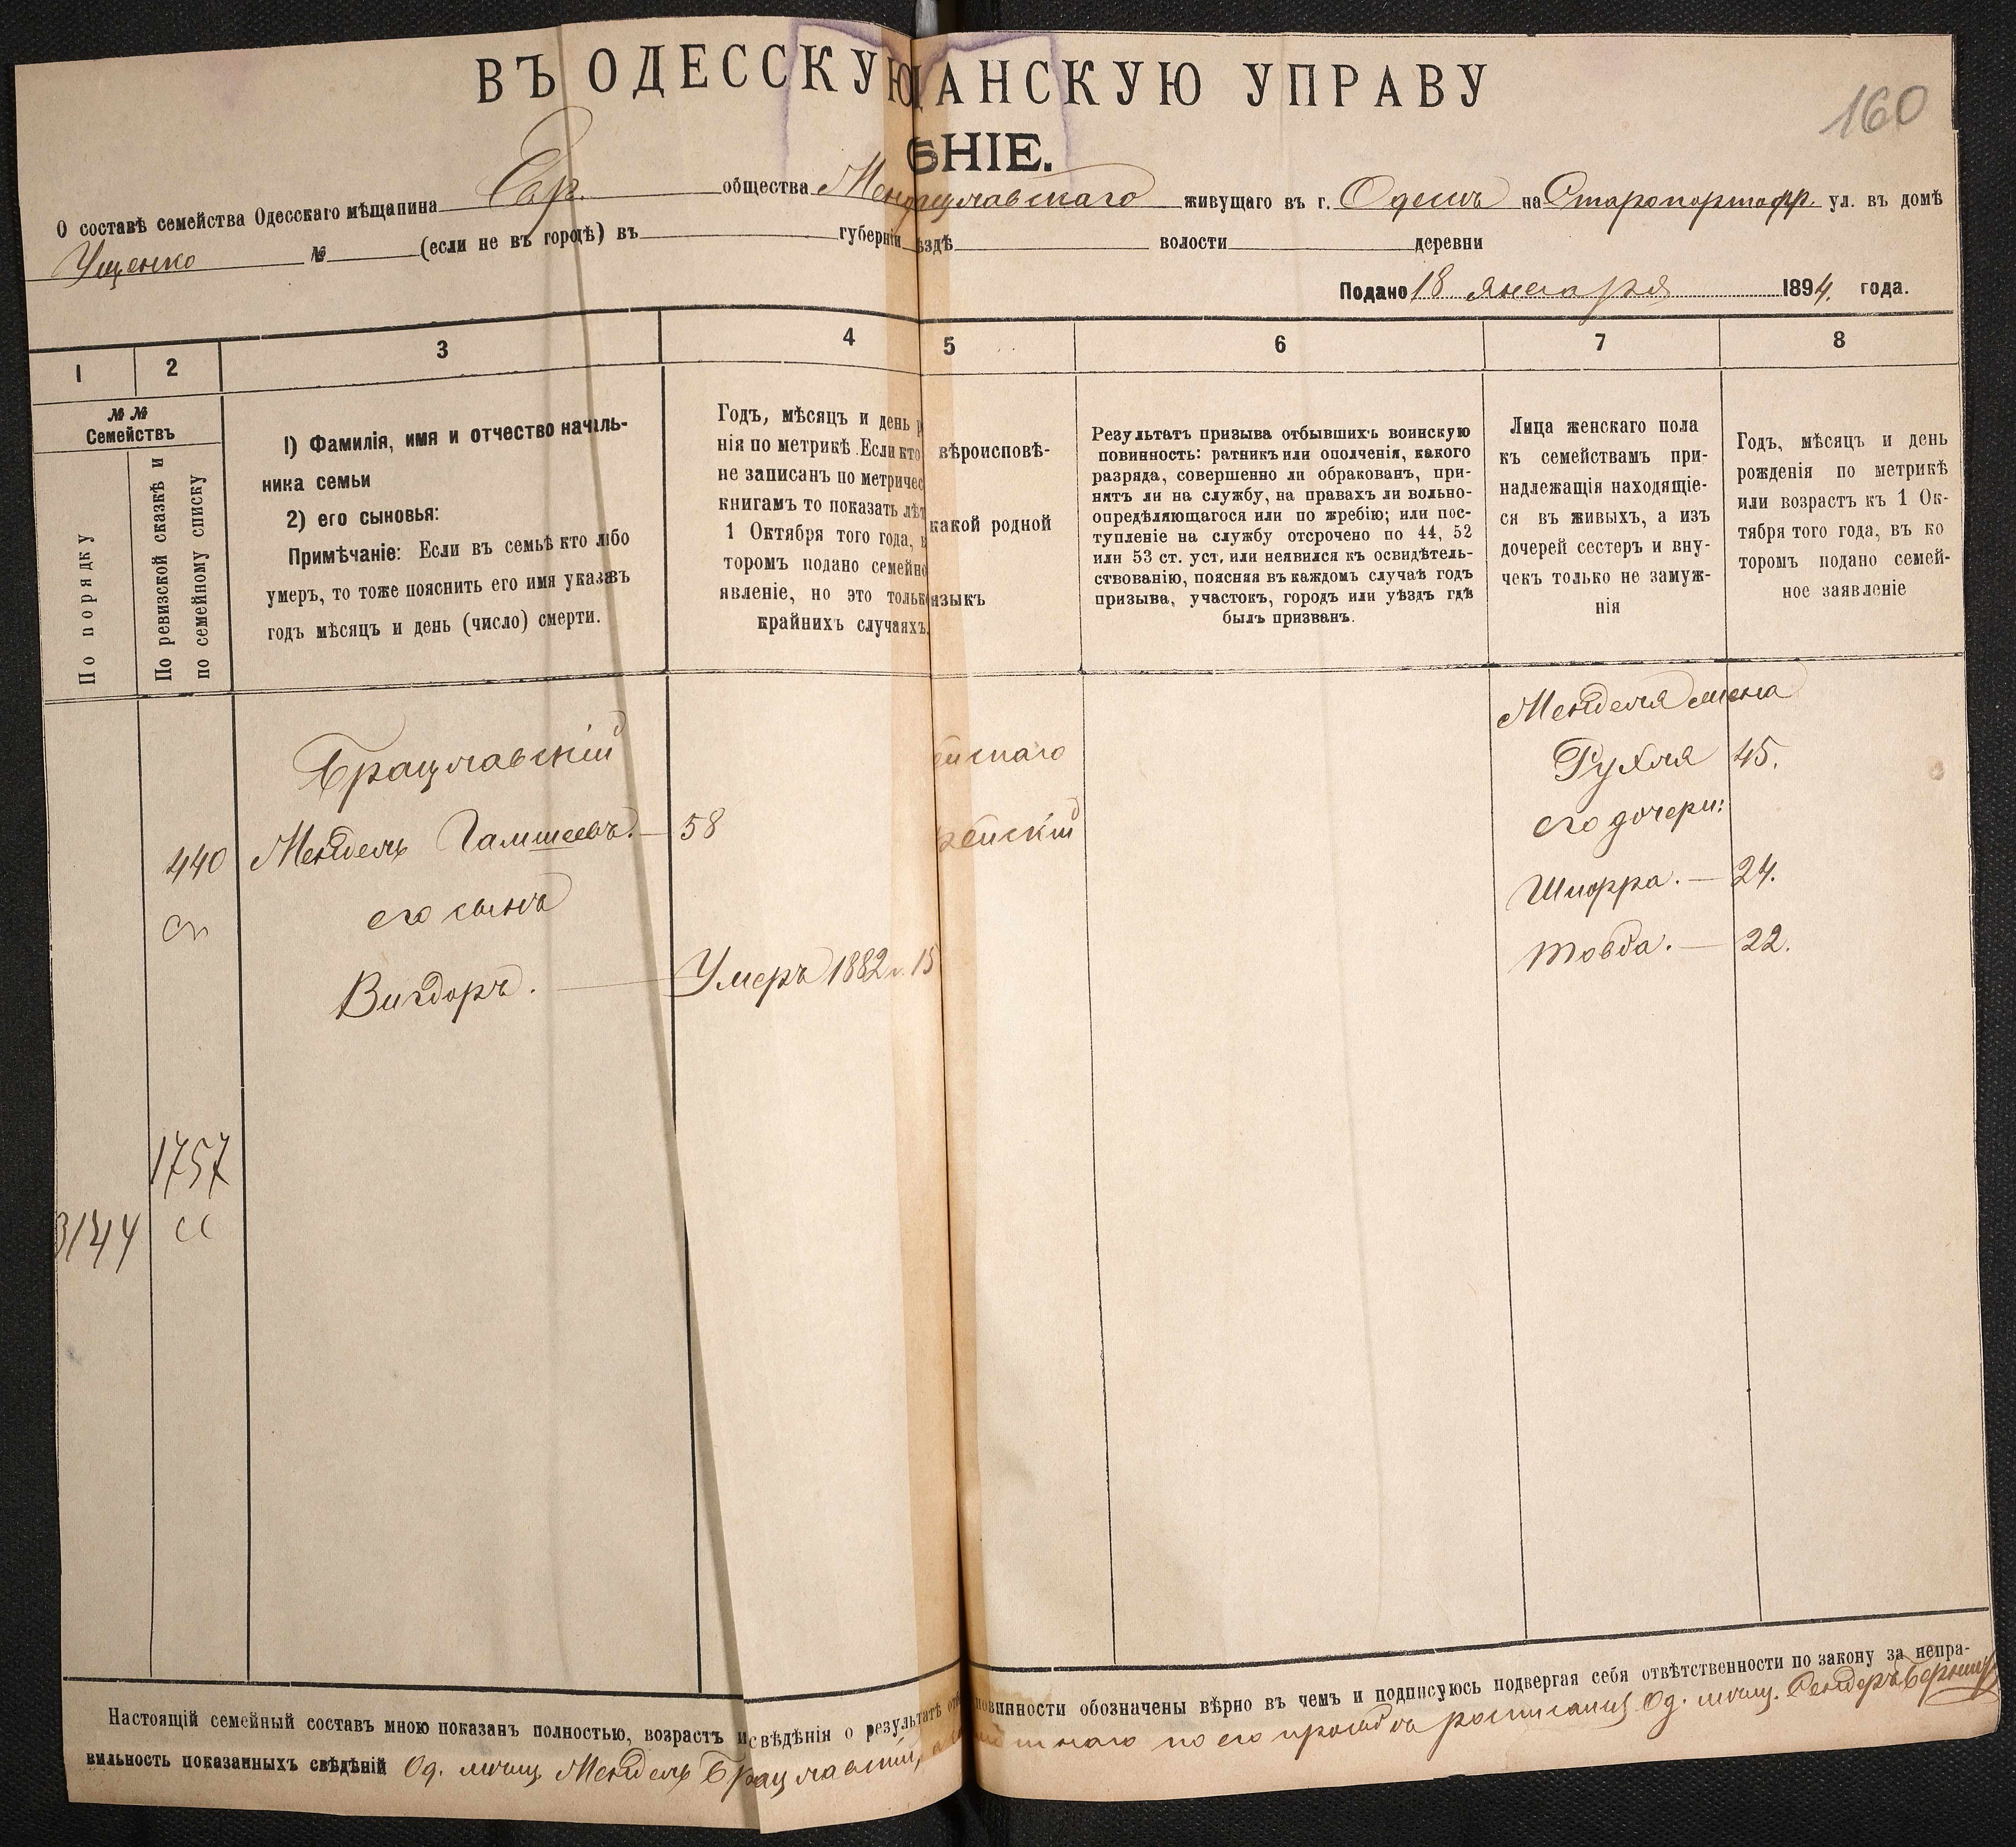 ВЪ ОДЕССКУЮ ЩАНСКУЮ УПРАВУ
160
ѢНІЕ.
О составѣ семейства Одесскаго мѣщанина Евр. общества Мен живущаго въ г. Одессѣ на Старопортофр. ул. въ домѣ
Ущенко № (если не въ городѣ) въ губерніи ѣздѣ волости деревни
Подано 18 января 1894. года.
1
2
3
4
5
6
7
8
№ №
Семействъ
По порядку
По ревизской сказкѣ и
по семейному списку
1) Фамилія, имя и отчество началь-
ника семьи
2) его сыновья:
Примѣчаніе: Если въ семьѣ кто либо
умеръ, то тоже пояснить его имя указавъ
годъ мѣсяцъ и день (число) смерти.
Годъ, мѣсяцъ и день р
нія по метрикѣ. Если кто
не записанъ по метричес
книгамъ то показать лѣт
1 Октября того года, в
торомъ подано семейно
явленіе, но это только
крайнихъ случаяхъ.
вѣроисповѣ-
какой родной
языкъ
Результатъ призыва отбывшихъ воинскую
повинность: ратникъ или ополченія, какого
разряда, совершенно ли обракованъ, при-
нятъ ли на службу, на правахъ ли вольно-
опредѣляющагося или по жребію; или пос-
тупленіе на службу отсрочено по 44, 52
или 53 ст. уст. или неявился къ освидѣтель-
ствованію, поясняя въ каждомъ случаѣ годъ
призыва, участокъ, городъ или уѣздъ гдѣ
былъ призванъ.
Лица женскаго пола
къ семействамъ при-
надлежащія находящіе-
ся въ живыхъ, а изъ
дочерей сестеръ и вну-
чекъ только не замуж-
нія
Годъ, мѣсяцъ и день
рожденія по метрикѣ
или возрастъ къ 1 Ок-
тября того года, въ ко
торомъ подано семей-
ное заявленіе
Менделя жена
Брацлавскій
ейскаго
Рухля 45.
440 Мендель Гамшеевъ. — 58
рейскій
его дочери:
сп
его сынъ
Шифра. — 24.
Вигдоръ. — Умеръ 1882 г. 15
Товба. — 22.
1757
3144 сс
Настоящій семейный составъ мною показанъ полностью, возрастъ и свѣдѣнія о результатѣ отб повинности обозначены вѣрно въ чемъ и подписуюсь подвергая себя отвѣтственности по закону за непра-
вильность показанныхъ свѣдѣній Од. мѣщ. Мендель Брацлавскій, а по его просьбѣ росписался Од. мѣщ.